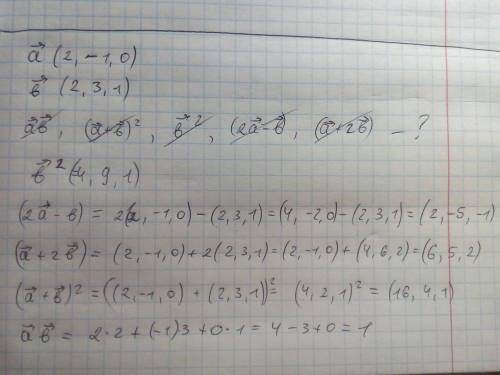 a⃗ (2, -1, 0)
b⃗ (2, 3, 1)
a⃗b⃗, (a⃗+b⃗)², b⃗², (2a⃗-b⃗), (a⃗+2b⃗) - ?
b⃗² (4, 9, 1)
(2a⃗-b) = 2(2, -1, 0) - (2, 3, 1) = (4, -2, 0) - (2, 3, 1) = (2, -5, -1)
(a⃗+2b⃗) = (2, -1, 0) + 2(2, 3, 1) = (2, -1, 0) + (4, 6, 2) = (6, 5, 2)
(a⃗+b⃗)² = ((2, -1, 0) + (2, 3, 1))² = (4, 2, 1)² = (16, 4, 1)
a⃗b⃗ = 2·2 + (-1)3 + 0·1 = 4 - 3 + 0 = 1